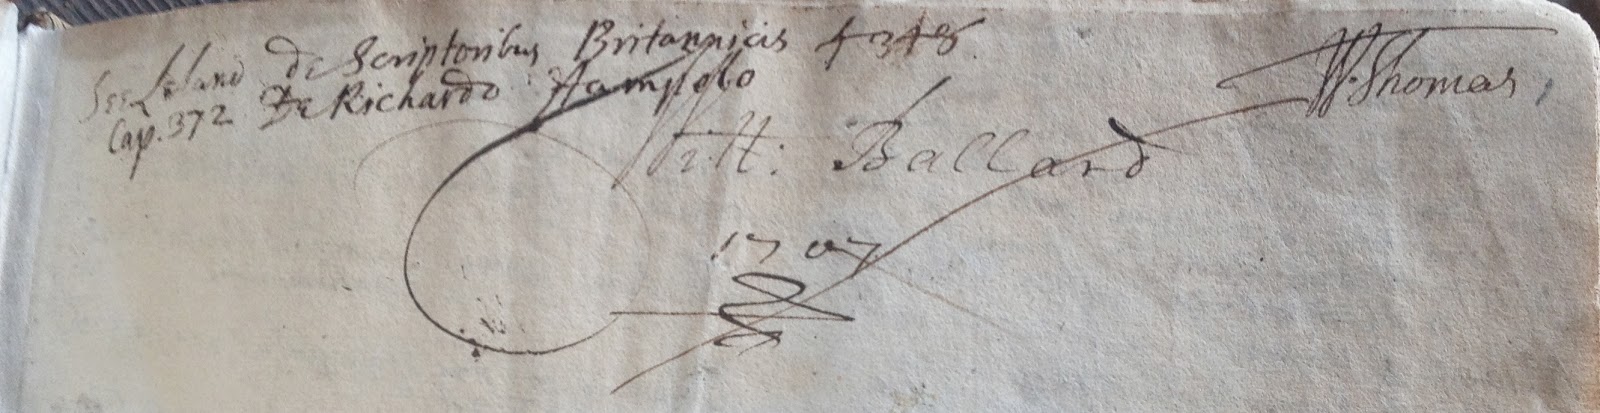 See Leland de Scriptoribus Britannicis 348
Cap. 372 De Richardo Hampolo
W. Thomas
Ballard
1707